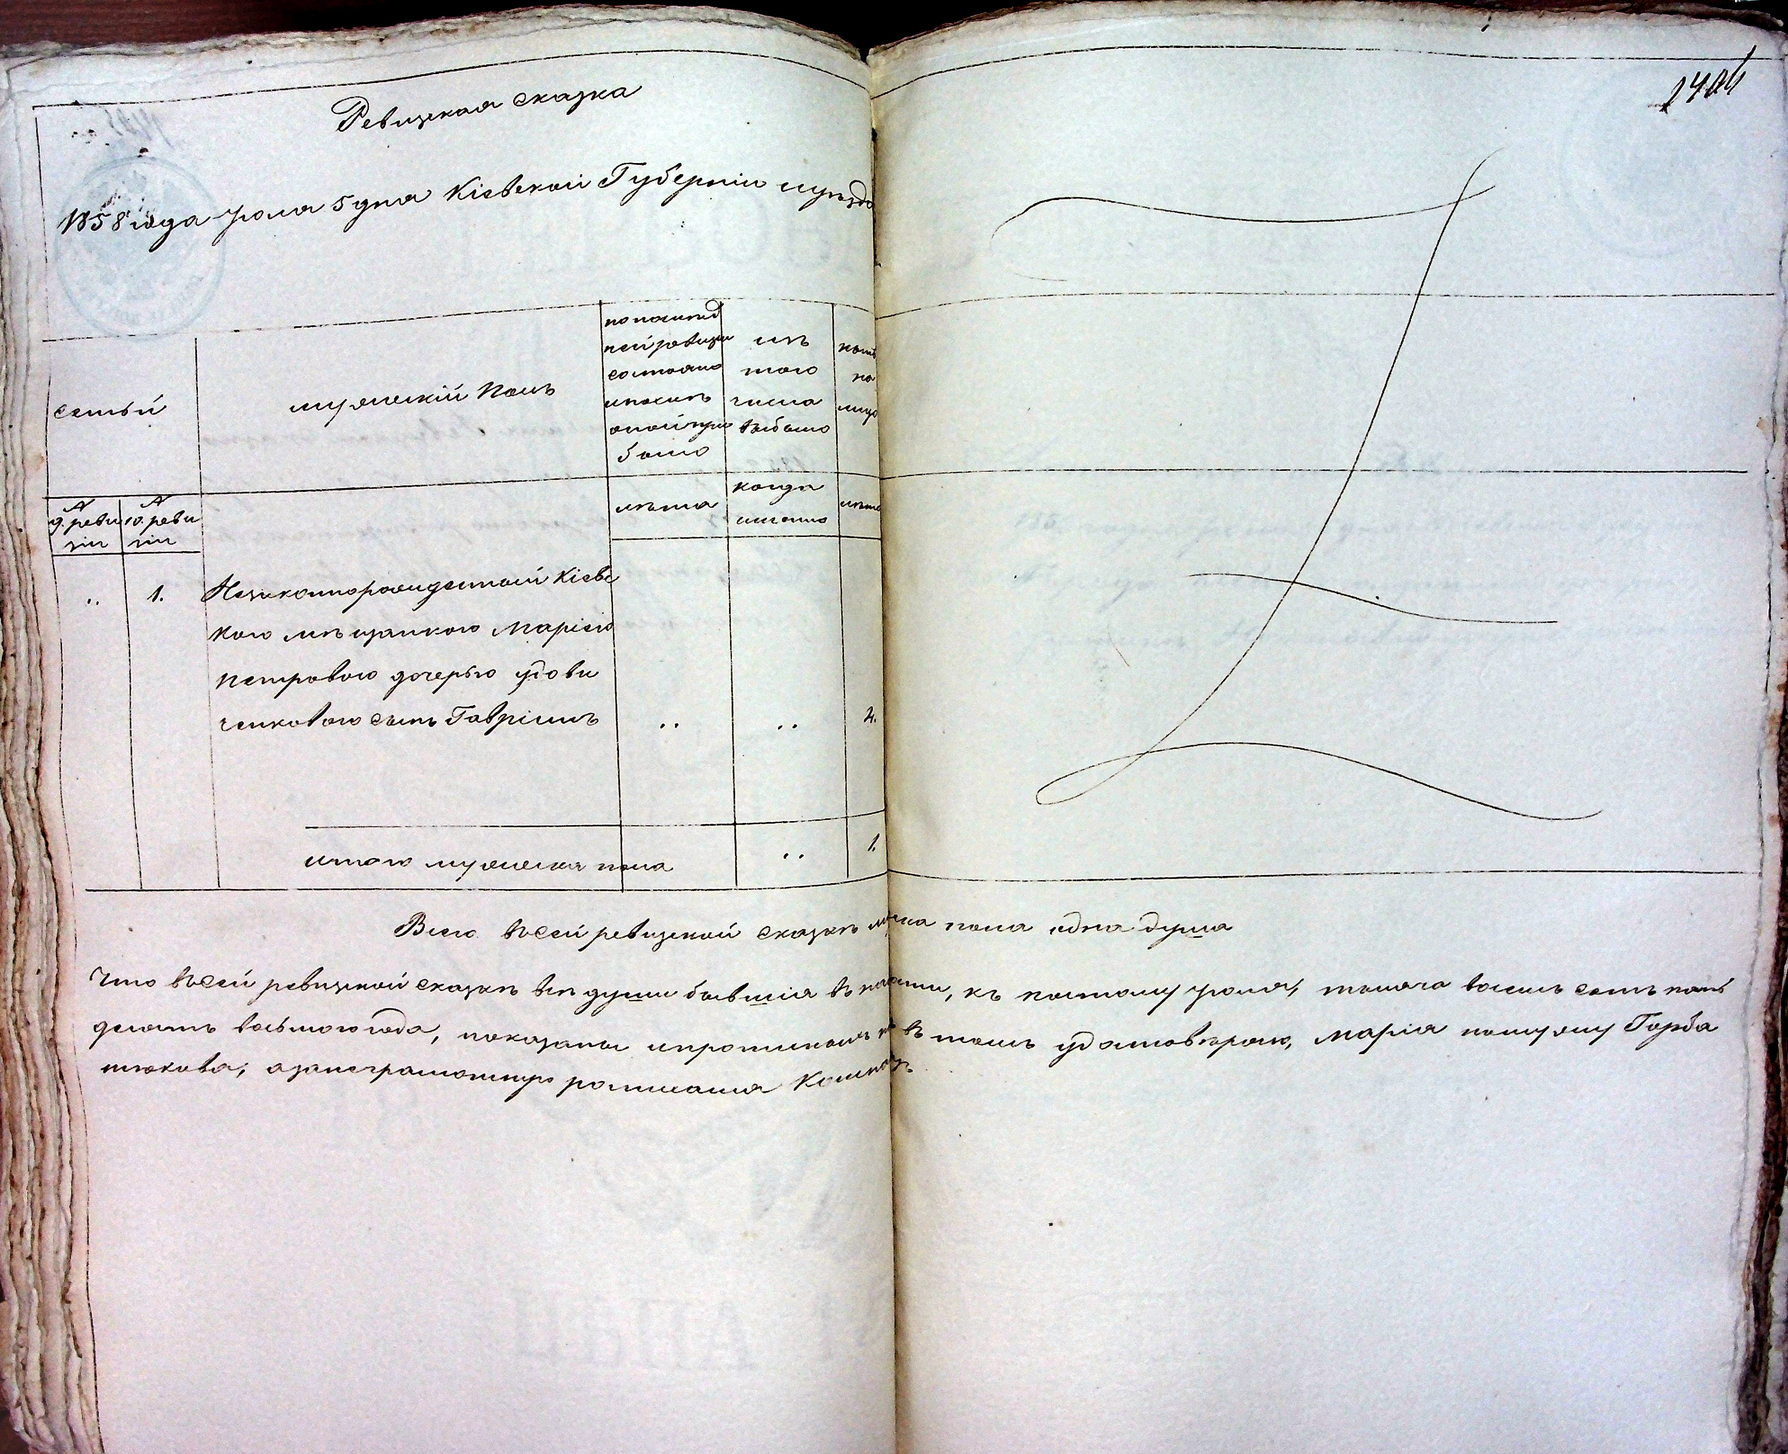 Ревизская сказка
1858 года Июля 5 дня Кіевской Губерніи и уѣзда
семьи
мужескій Полъ
по послѣд
ней ревизіи
состояло
и послѣ
оной при
было
изъ
того
числа
выбыло
нынѣ
на
лицо
№
9. реви
зіи
№
10. реви
зіи
лѣта
когда
именно
лѣта
1. Незаконнорожденный Кіевс
кою мѣщанкою Маріею
Петровою дочерью
чениковою сынъ Гавріилъ 2.
итого мужеска пола 1.
Всего въ сей ревизской сказкѣ муска пола одна душа
Что въ сей ревизской сказкѣ всѣ души бывшія въ къ пятому Июля, тысяча восемь сотъ пять
десятъ восьмого года, показаны и въ томъ удостовѣряю, Марія по мужу Горба
тюкова; а за неграмотную росписался